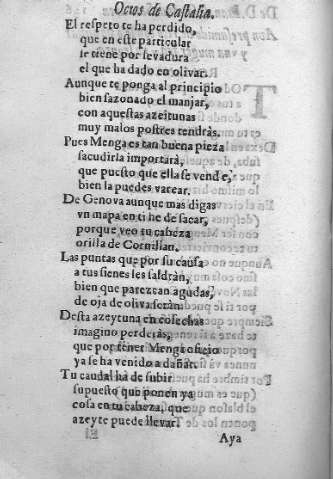 Ocios de Castalia.
El respeto te ha perdido,
que en este particular
se tiene por levadura
el que ha dado en olivar.
Aunque te ponga al principio
bien sazonado el manjar,
con aquestas azeitunas
muy malos postres tendràs.
Pues Menga es tan buena pieza
sacudirla importarà,
que puesto que ella se vende,
bien la puedes varear.
De Genova aunque mas digas
vn mapa en ti he de sacar,
porque veo tu cabeza
orilla de Cornilian.
Las puntas que por su causa
a tus sienes les saldràn,
bien que parezcan agudas,
de oja de oliva seràn.
Desta azeytuna en cosechas
imagino perderàs,
que por tener Menga
ya se ha venido a dañar.
Tu caudal ha de subir
supuesto que ponen ya
cosa en tu cabeza, que
azeyte puede llevar.
Aya